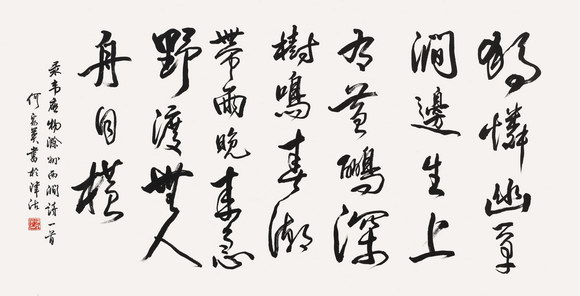 獨憐幽草
澗邊生上
有黃鸝深
樹鳴春潮
帶雨晚來急
野渡無人
舟自橫
录韦應物滁州西澗詩一首
何家英書於津沽